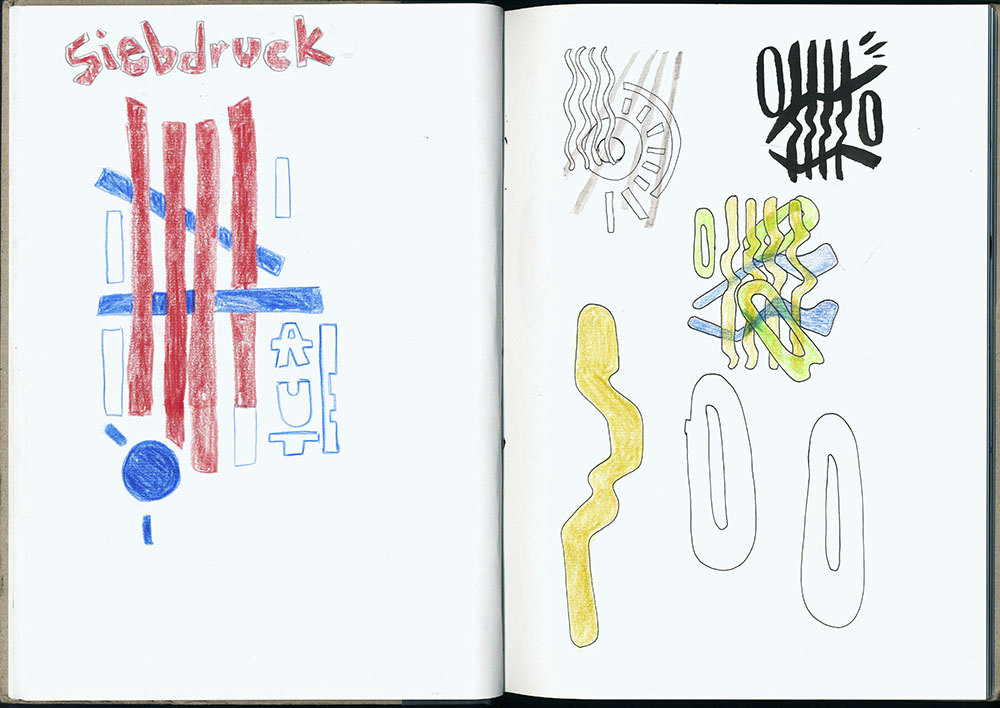 Siebdruck
A
U
T